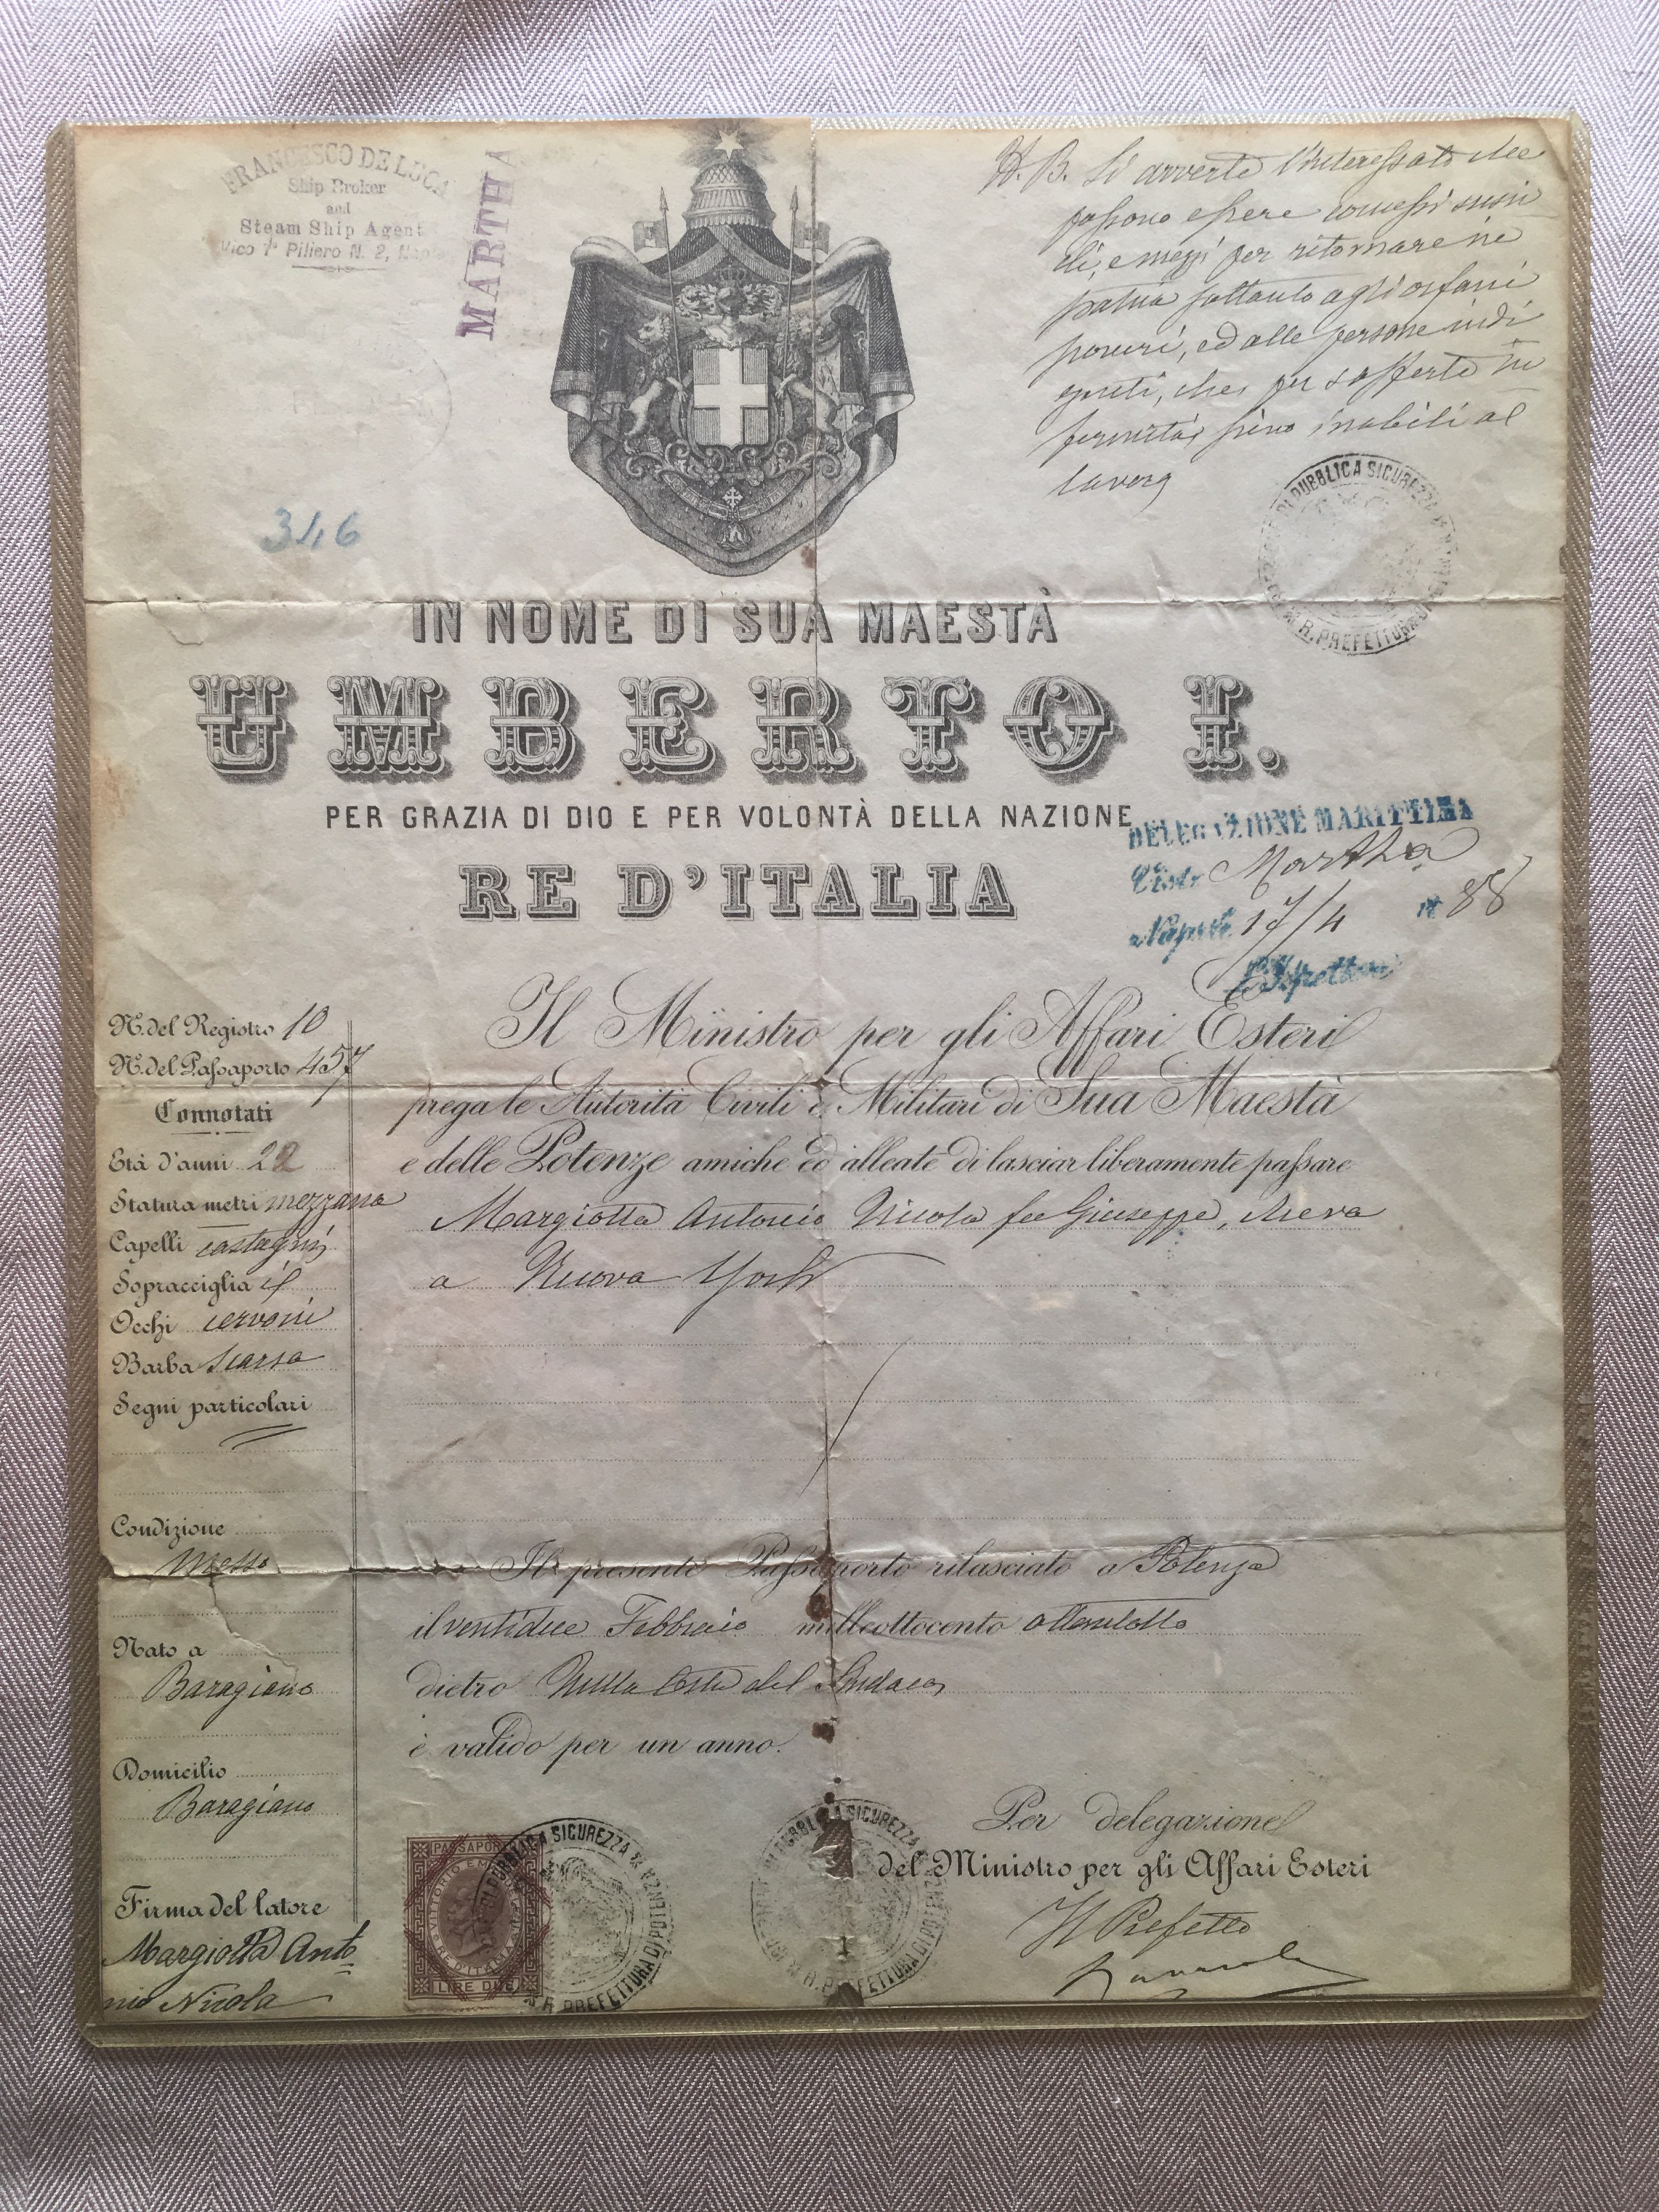 FRANCESCO DE LUCA
Ship Broker
and
Steam Ship Agent
Vico 1º Piliero N. 2,
MARTHA
N.B. Si avverte l'interessato che
possono essere concessi sussi
di, e mezzi per ritornare in
patria soltanto agli orfani
poveri, ed alle persone indi
genti, che per sofferte in
fermità, sieno inabili al
lavoro
346
DI PUBBLICA SICUREZZA
R. PREFETTURA
IN NOME DI SUA MAESTÀ
UMBERTO I.
PER GRAZIA DI DIO E PER VOLONTÀ DELLA NAZIONE
RE D'ITALIA
DELEGAZIONE MARITTIMA
Visto Martha
Napoli 17/4 1888
N. del Registro 10
N. del Passaporto 457
Connotati
Età d'anni 22
Statura metri mezzana
Capelli castagni
Sopracciglia id
Occhi cervoni
Barba scarsa
Segni particolari
Condizione
Nato a
Baragiano
Domicilio
Baragiano
Firma del latore
Margiotta Anto
nio Nicola
Il Ministro per gli Affari Esteri
prega le Autorità Civili e Militari di Sua Maestà
e delle Potenze amiche ed alleate di lasciar liberamente passare
Margiotta Antonio Nicola fu Giuseppe, che va
a Nuova York
Il presente Passaporto rilasciato a Potenza
il ventidue Febbraio milleottocento ottantotto
dietro Nulla Osta del Sindaco
è valido per un anno.
Per delegazione
del Ministro per gli Affari Esteri
Il Prefetto
VITTORIO
RE D'ITALIA
LIRE DUE
DI PUBBLICA SICUREZZA
R. PREFETTURA DI POTENZA
SICUREZZA
R. PREFETTURA DI POTENZA